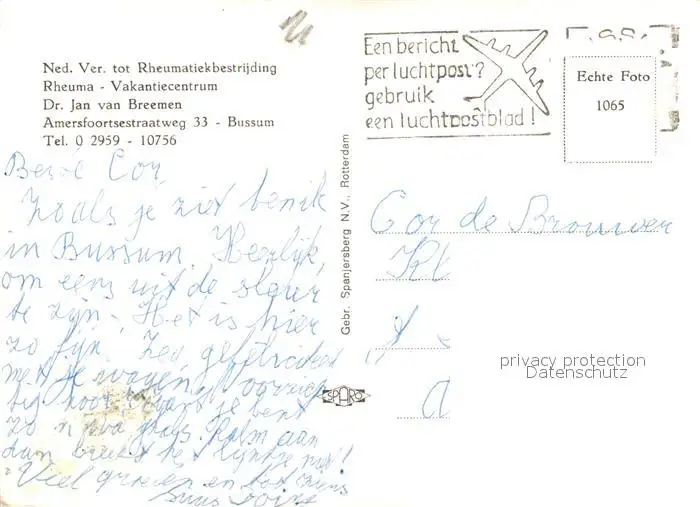 Ned. Ver. tot Rheumatiekbestrijding
Rheuma - Vakantiecentrum
Dr. Jan van Breemen
Amersfoortsestraatweg 33 - Bussum
Tel. 0 2959 - 10756
Beste Cor,
Zoals je ziet ben ik
in Bussum. Heerlijk,
om eens uit de sleur
te zijn. Het is hier
zo fijn. Zeg gefeliciteerd
met je wagen,
hoor, want je bent
zo'n Kalm aan
dan breekt het lijntje niet!
Viel groeten en tot ziens
Gebr. Spanjersberg N.V., Rotterdam
SPARO
Een bericht
per luchtpost?
gebruik
een luchtpostblad!
Echte Foto
1065
Cor de Brouwer
Kl
privacy protection
Datenschutz